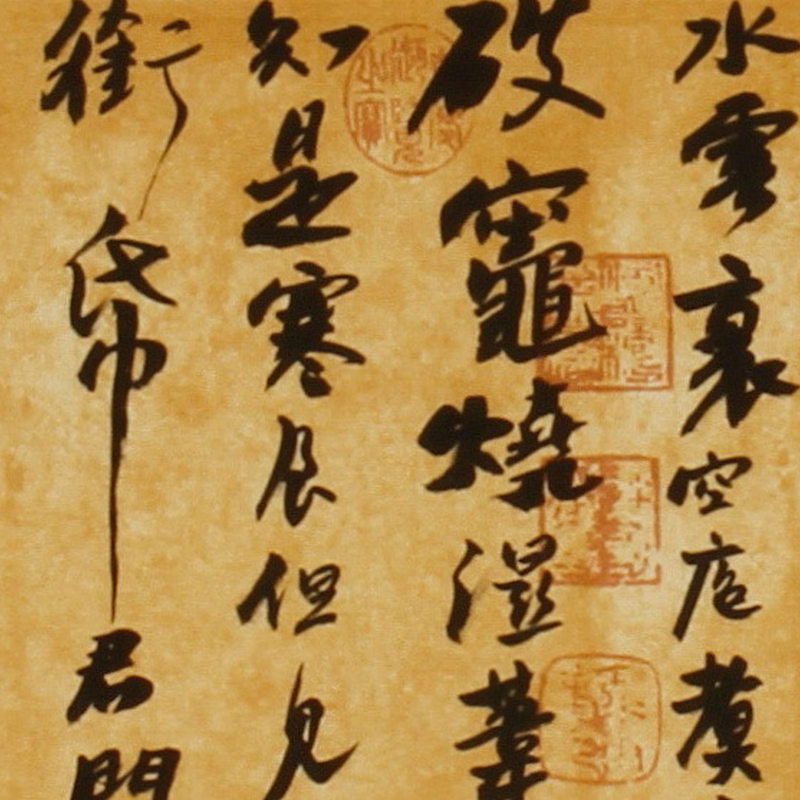 水雲裏空庖煑
破竈燒濕葦
知是寒食但見
銜帋君門